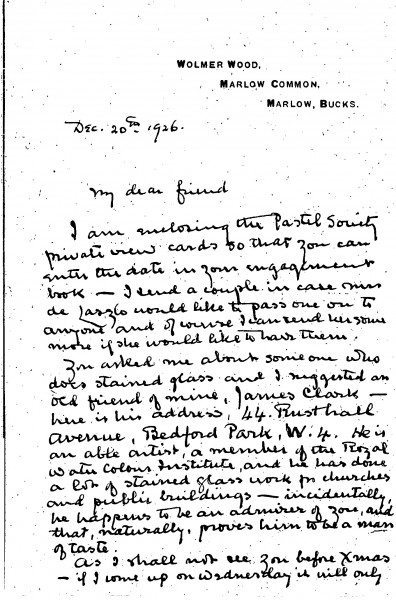 WOLMER WOOD,
MARLOW COMMON,
MARLOW, BUCKS.
Dec. 20th 1926.
My dear friend
I am enclosing the Pastel Society
private view cards so that you can
enter the date in your engagement
book – I send a couple in case Mrs
de Laszlo would like to pass one on to
anyone and of course I can send her some
more if she would like to have them.
You asked me about someone who
does stained glass and I suggested an
old friend of mine, James Clark –
here is his address, 44. Rusthall
Avenue, Bedford Park, W.4. He is
an able artist, a member of the Royal
Water Colour Institute, and he has done
a lot of stained glass work for churches
and public buildings – incidentally,
he happens to be an admirer of you, and
that, naturally, proves him to be a man
of taste.
As I shall not see you before Xmas
– if I come up on Wednesday it will only